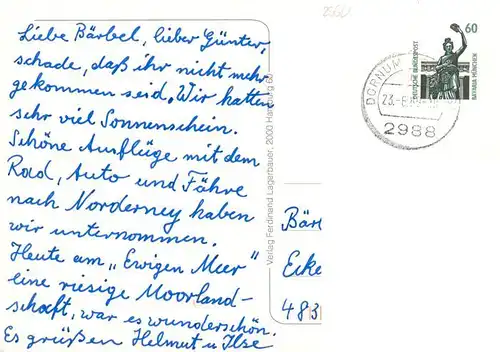 Liebe Bärbel, lieber Günter,
schade, daß ihr nicht mehr
gekommen seid. Wir hatten
sehr viel Sonnenschein.
Schöne Ausflüge mit dem
Rad, Auto und Fähre
nach Norderney haben
wir unternommen.
Heute am „Ewigen Meer"
eine riesige Moorland-
schaft, war es wunderschön.
Es grüßen Helmut u. Ilse
Verlag Ferdinand Lagerbauer, 2000 Hamburg 60
60
DEUTSCHE BUNDESPOST
BAVARIA MÜNCHEN
DORNUM
23.-8.
2988
Bärb
Ecke
483